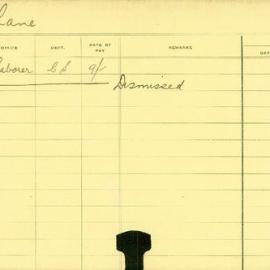 Lane
OFFICE DEPT. DATE OF PAY REMARKS OFF
Laborer CS 9/-
Dismissed